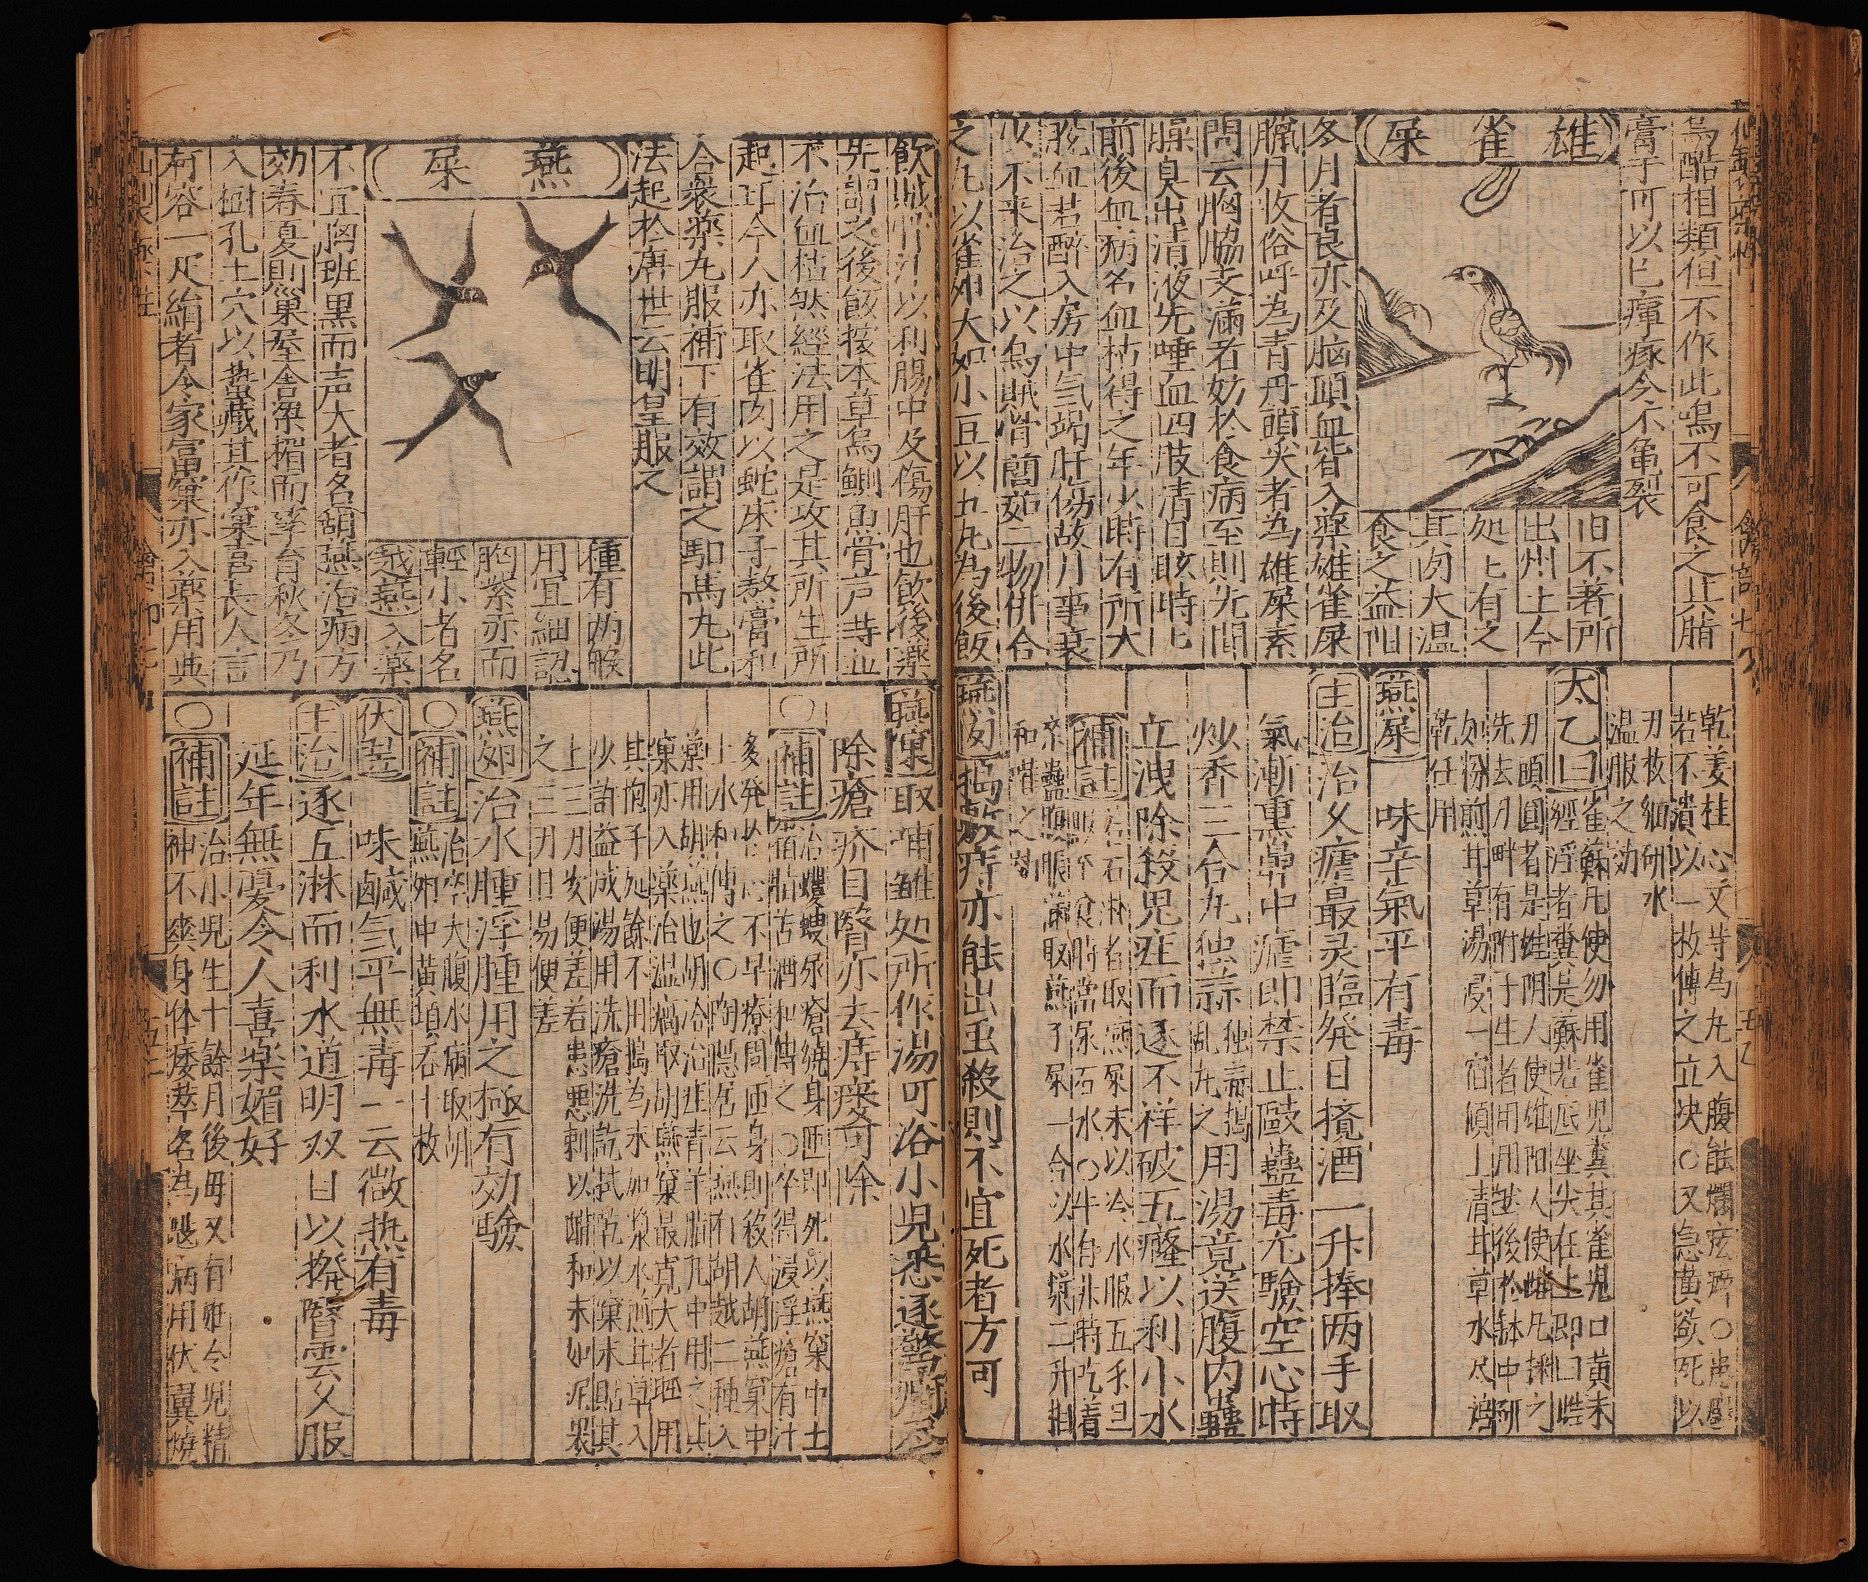 鳥酷相類但不作此鳴不可食之止脂
膏手可以已瘃今不龜裂
雄雀屎
旧不著所
出州土今
処上有之
其肉大温
食之益阳
冬月者良亦及脑頭血皆入藥雄雀屎
臘月收俗呼為青丹頭尖者為雄屎素
問云胸脇支滿者妨於食病至則先聞
臊臭出清液先唾血四肢清目眩時
前後血病名血枯得之年少時有所大
脫血若醉入房中气竭肝傷故月事衰
少不来治之以烏賊骨䕡茹二物併合
之丸以雀卵大如小豆以五丸為後飯
乾姜桂心艾等為丸入腹能爛痃癖○患癰
若不潰以一枚傅之立决○又急黄欲死以
丑枚細研水
温服之効
太乙曰
雀蘇凡使勿用雀児糞其雀児口黄未
經淫者糞是蘇若底坐尖在上即曰雌
丑頭圓者是雄阴人使雄阳人使雌凡採之
先去丑畔有附子生者用用坐後於鉢中研
如粉煎甘草湯浸一宿傾上清甘草水尽焙
乾任用
燕屎
味辛氣平有毒
主治
治久瘧最灵臨発日搅酒一升捧两手取
氣漸熏鼻中瘧即禁止敺蠱毒尤驗空心時
炒香三合丸独蒜
独蒜搗
亂丸之
用湯竟送腹内蠱
立洩除殺鬼疰而逐不祥破五癃以利小水
補註
若石淋者取燕屎末以冷水服五禾旦
服至食时當尿石水
和惜之
燕肉
搗敷痔亦能出虫殺則不宜死者方可
飲鲍鱼汁以利腸中及傷肝也飲後藥
先謂之後飯按本草烏鰂魚骨芦茹並
不治血枯然經法用之是攻其所生所
起耳今人亦取雀肉以蛇床子熬膏和
合衆藥丸服補下有效謂之馹馬丸此
法起於唐世云明皇服之
燕屎
種有两般
用宜細認
胸紫亦而
輕小者名
越燕入藥
不宜胸班黑而声大者名胡燕治病方
効春夏則巢屋舍梁楣而孳育秋冬乃
入樹孔土穴以蟄藏其作窠喜長人言
有容一疋絹者令家富窠亦入藥用典
燕窠
取啼雛処所作湯可浴小児悉逐驚癇
除瘡疥目翳亦去痔瘘可除
○補註
治蠼螋尿瘡繞身匝即死以燕窠中土
猪脂苦酒和傅之○卒得浸淫瘡有汁
多発於心不早療周匝身則殺人胡燕窠中
土水和傅之○陶隱居云燕有胡越二種入
藥用胡燕也胡治治疰青羊脂丸中用之其
窠亦入藥治温瘧取胡燕窠最寛大者惟用
其抱子処餘不用搗為末如漿水煎甘草入
少許益成湯用洗瘡洗訖拭乾以窠末貼其
上三月亥便差若患悪刺以醋和末如泥裹
之三丑日易便差
燕卵
治水腫浮腫用之極有効驗
○補註
治卒大腹水病取胡
燕卵中黄頓吞十枚
伏翼
味鹹气平無毒一云微热有毒
主治
逐五淋而利水道明双目以撥翳雲久服
延年無憂令人喜樂媚好
○補註
治小児生十餘月後母又有姙令児精
神不爽身体痿萃名為鬾病用伏翼燒